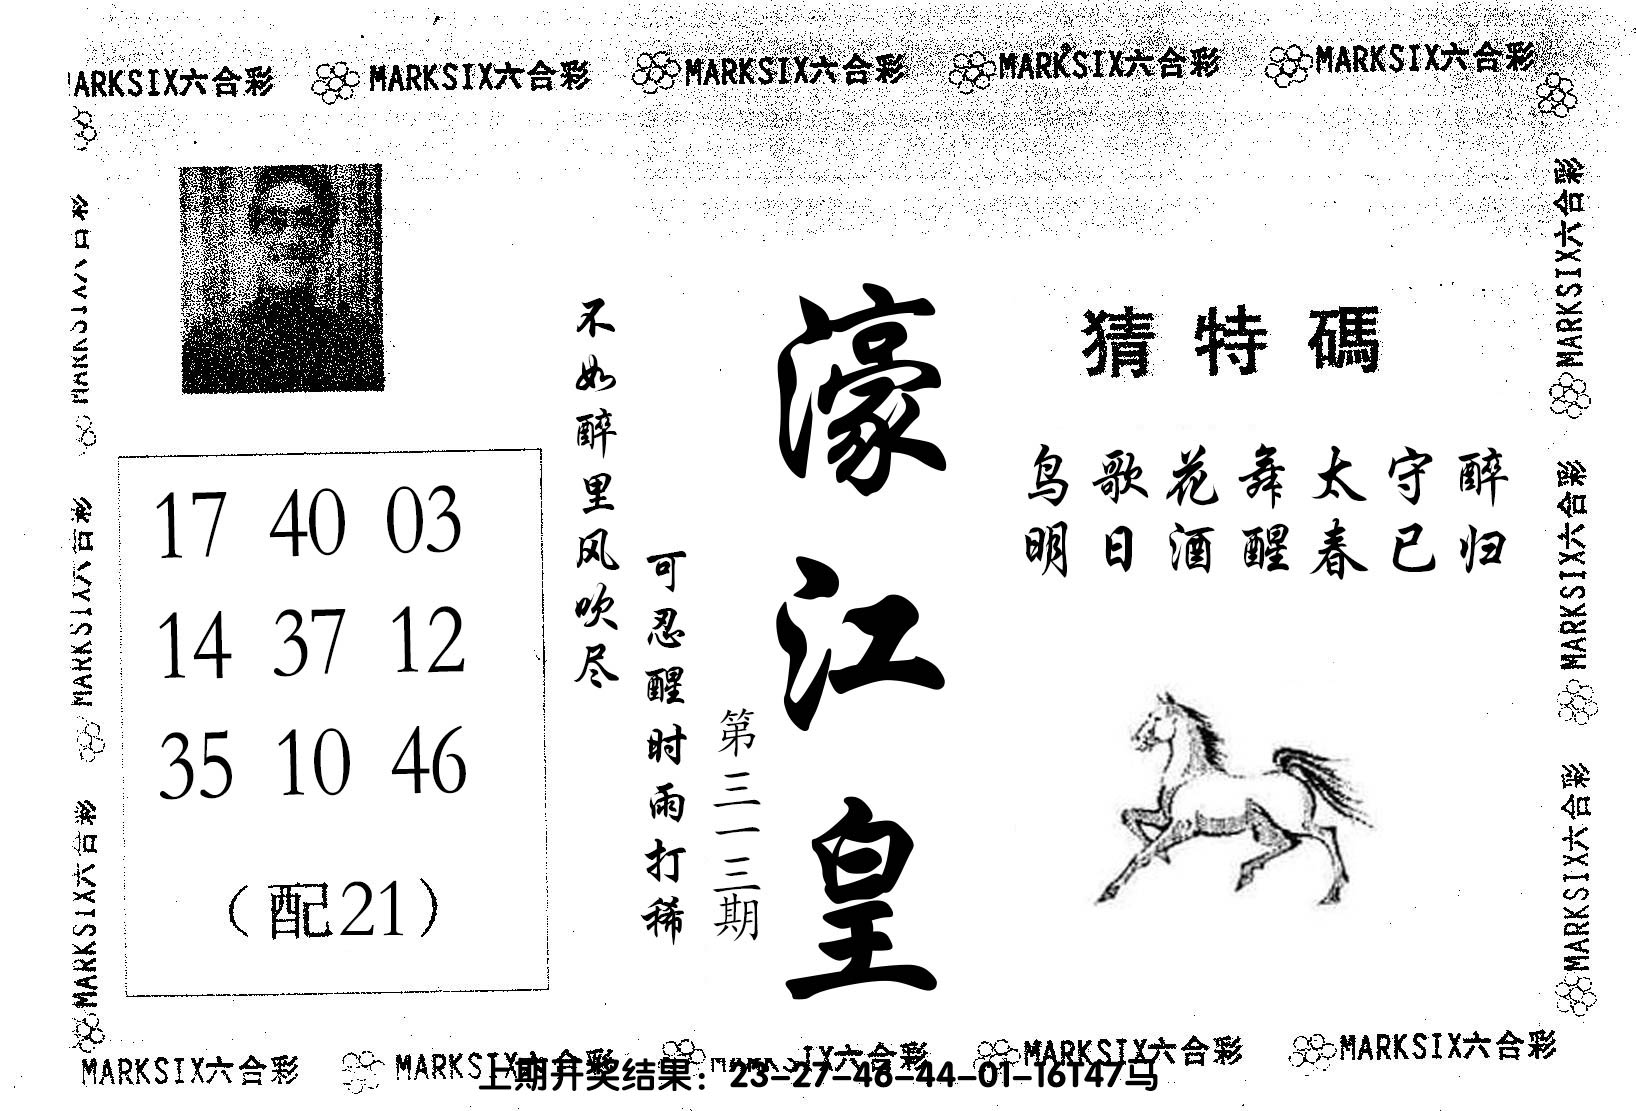 MARKSIX六合彩 MARKSIX六合彩 MARKSIX六合彩 MARKSIX六合彩 MARKSIX六合彩
猜特碼
鸟歌花舞太守醉
明日酒醒春已归
濠江皇
第三一三期
不如醉里风吹尽
可忍醒时雨打稀
17 40 03
14 37 12
35 10 46
（配21）
MARKSIX六合彩
MARKSIX六合彩
MARKSIX六合彩
MARKSIX六合彩
MARKSIX六合彩
MARKSIX六合彩
MARKSIX六合彩 MARKSIX六合彩 MARKSIX六合彩 MARKSIX六合彩 MARKSIX六合彩
上期开奖结果：23-27-46-44-01-16T47马